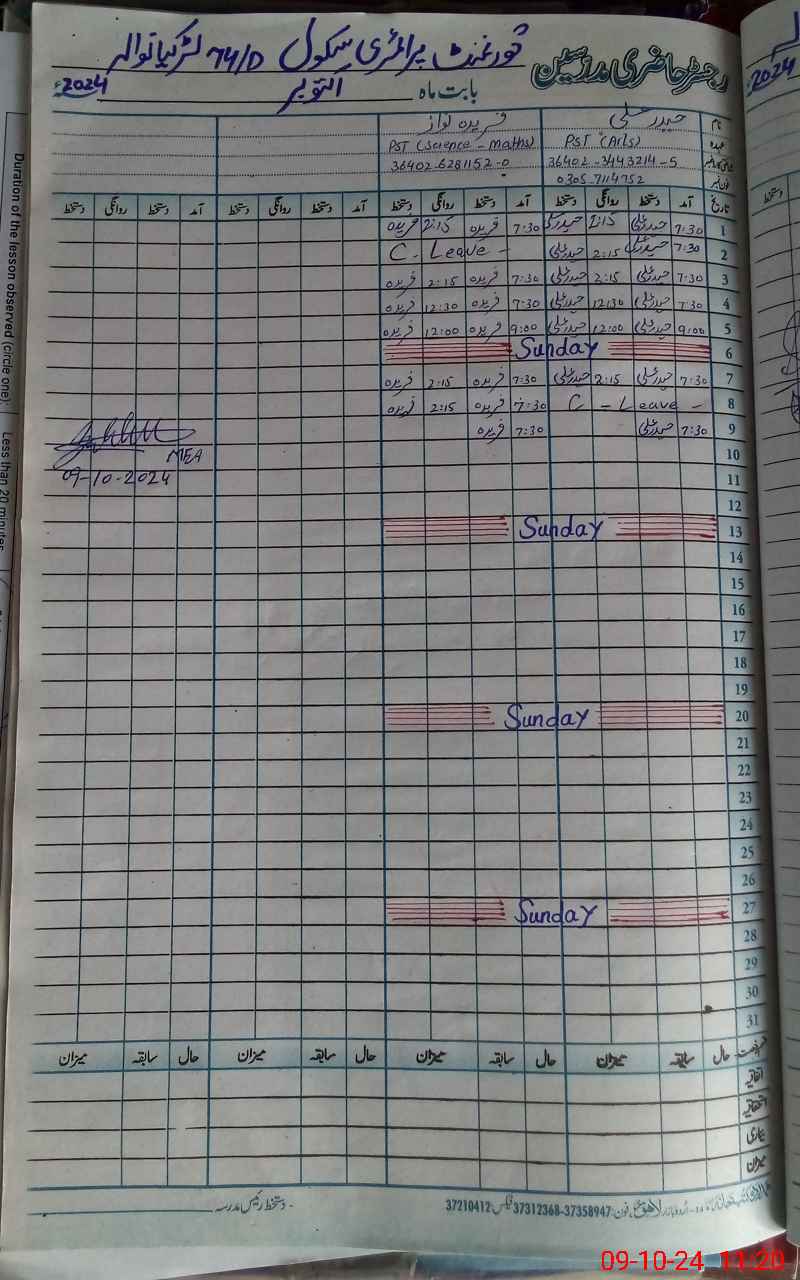 رجسٹر حاضری مدرسین گورنمنٹ پرائمری سکول 74/D لڑکیانوالہ
بابت ماہ اکتوبر 2024ء
نام حیدر علی فریدہ نواز
عہدہ PST (Arts) PST (Science - Maths)
36402-3443214-5 36402-6281152-0
فون نمبر 0305-7114752
تاریخ آمد دستخط روانگی دستخط آمد دستخط روانگی دستخط آمد دستخط روانگی دستخط آمد دستخط روانگی دستخط
1 7:30 حیدر علی 2:15 حیدر علی 7:30 فریدہ 2:15 فریدہ
2 7:30 حیدر علی 2:15 حیدر علی C. Leave -
3 7:30 حیدر علی 2:15 حیدر علی 7:30 فریدہ 2:15 فریدہ
4 7:30 حیدر علی 12:30 حیدر علی 7:30 فریدہ 12:30 فریدہ
5 9:00 حیدر علی 12:00 حیدر علی 9:00 فریدہ 12:00 فریدہ
6 Sunday
7 7:30 حیدر علی 2:15 حیدر علی 7:30 فریدہ 2:15 فریدہ
8 C - Leave - 7:30 فریدہ 2:15 فریدہ
9 7:30 حیدر علی 7:30 فریدہ
10 MEA
11 09-10-2024
12
13 Sunday
14
15
16
17
18
19
20 Sunday
21
22
23
24
25
26
27 Sunday
28
29
30
31
حال سابقہ میزان حال سابقہ میزان حال سابقہ میزان حال سابقہ میزان
اتفاقیہ
استحقاقیہ
بیماری
میزان
لاہور فون: 37358947-37312368 فیکس: 37210412
دستخط رئیس مدرسہ
Duration of the lesson observed (circle one): Less than 20 minutes
2024
09-10-24 11:20